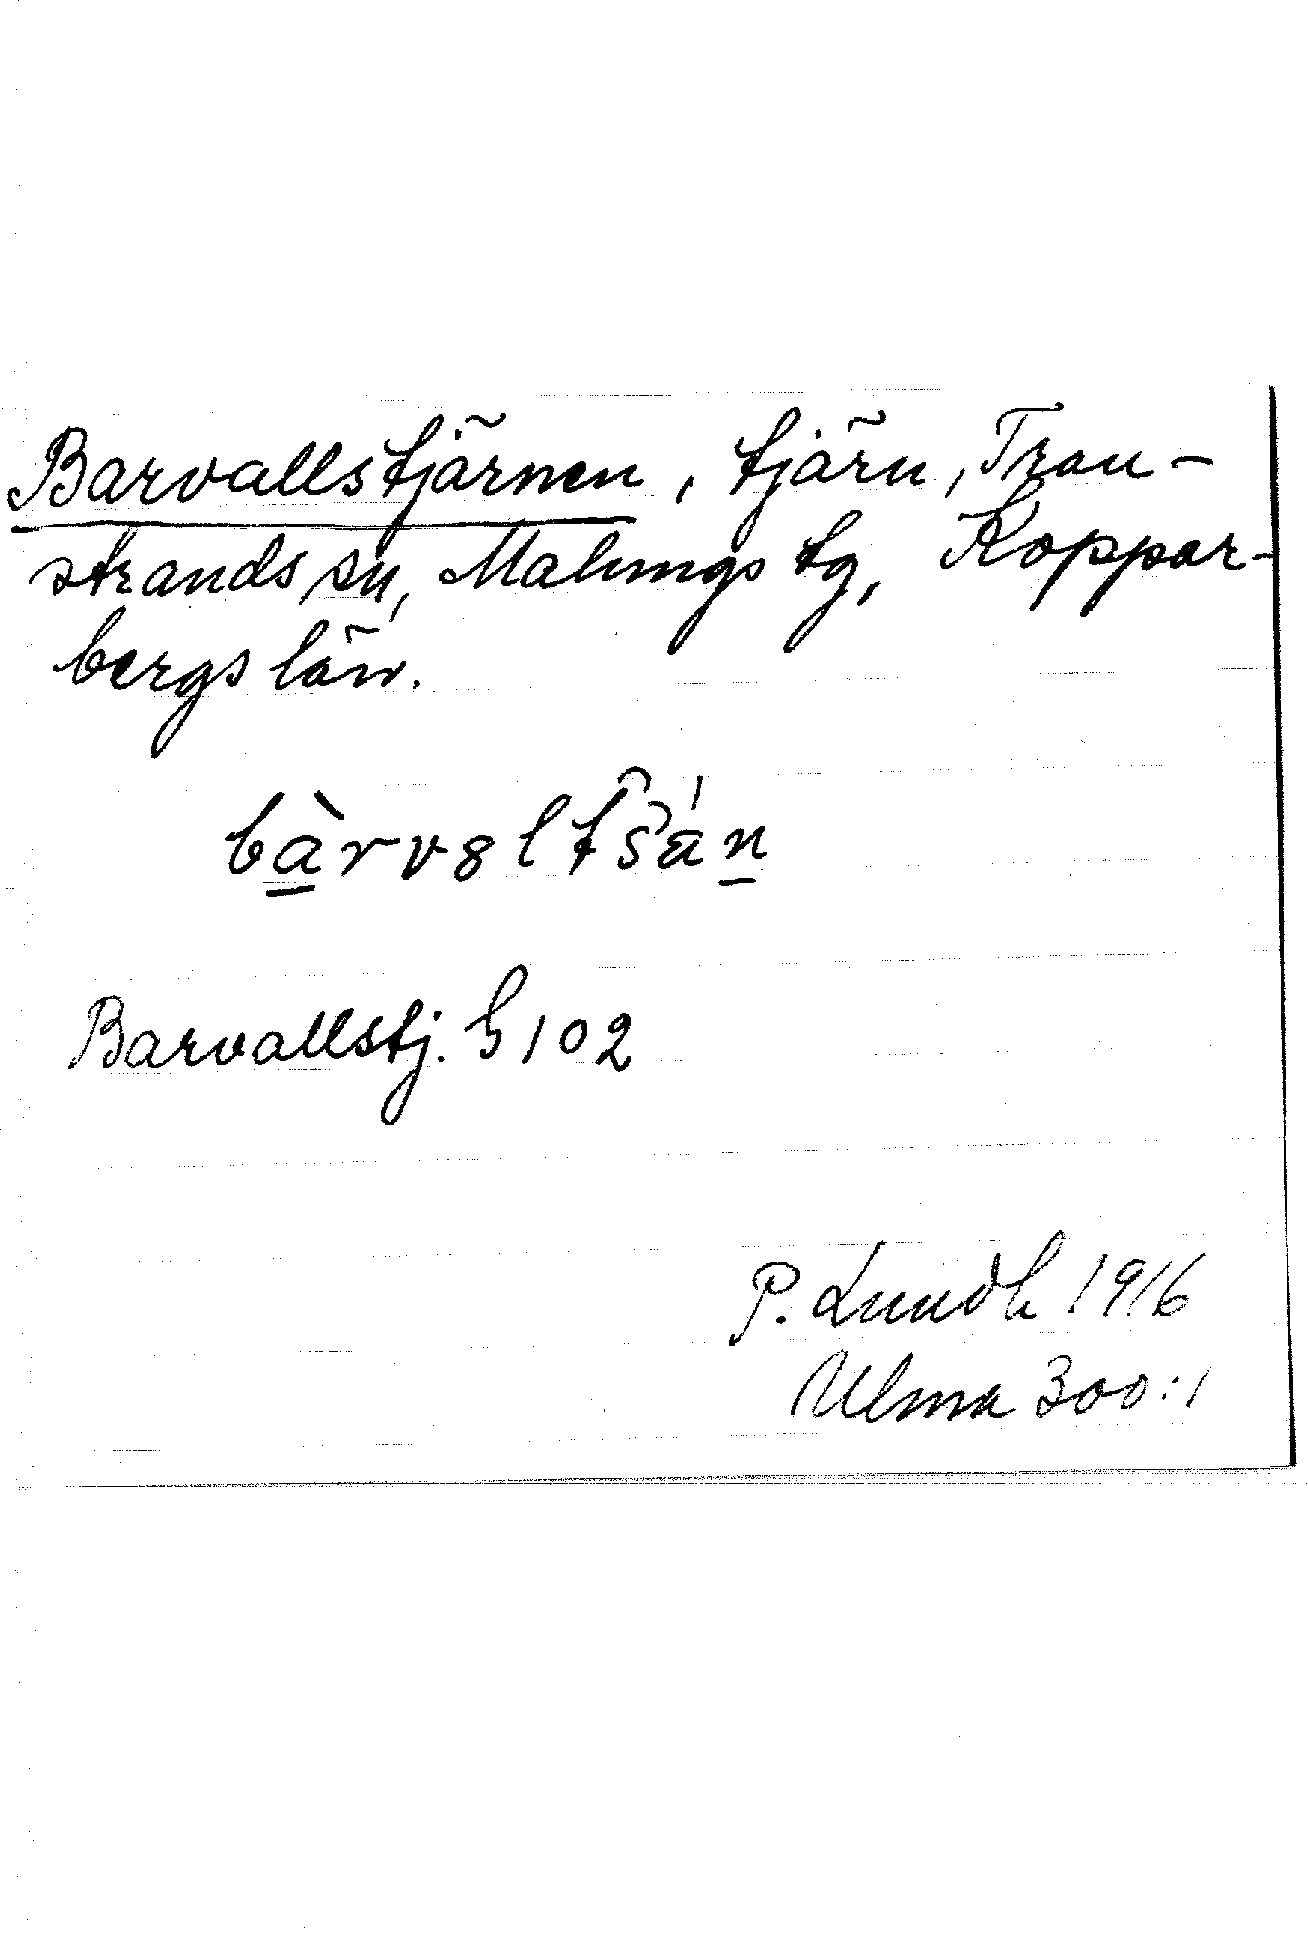 Barvallstjärnen, tjärn, Tran-
strands sn, Malungs tg, Koppar-
bergs län.
Barvallstj. G 102
P. Lundh 1916
Ulma 300:1